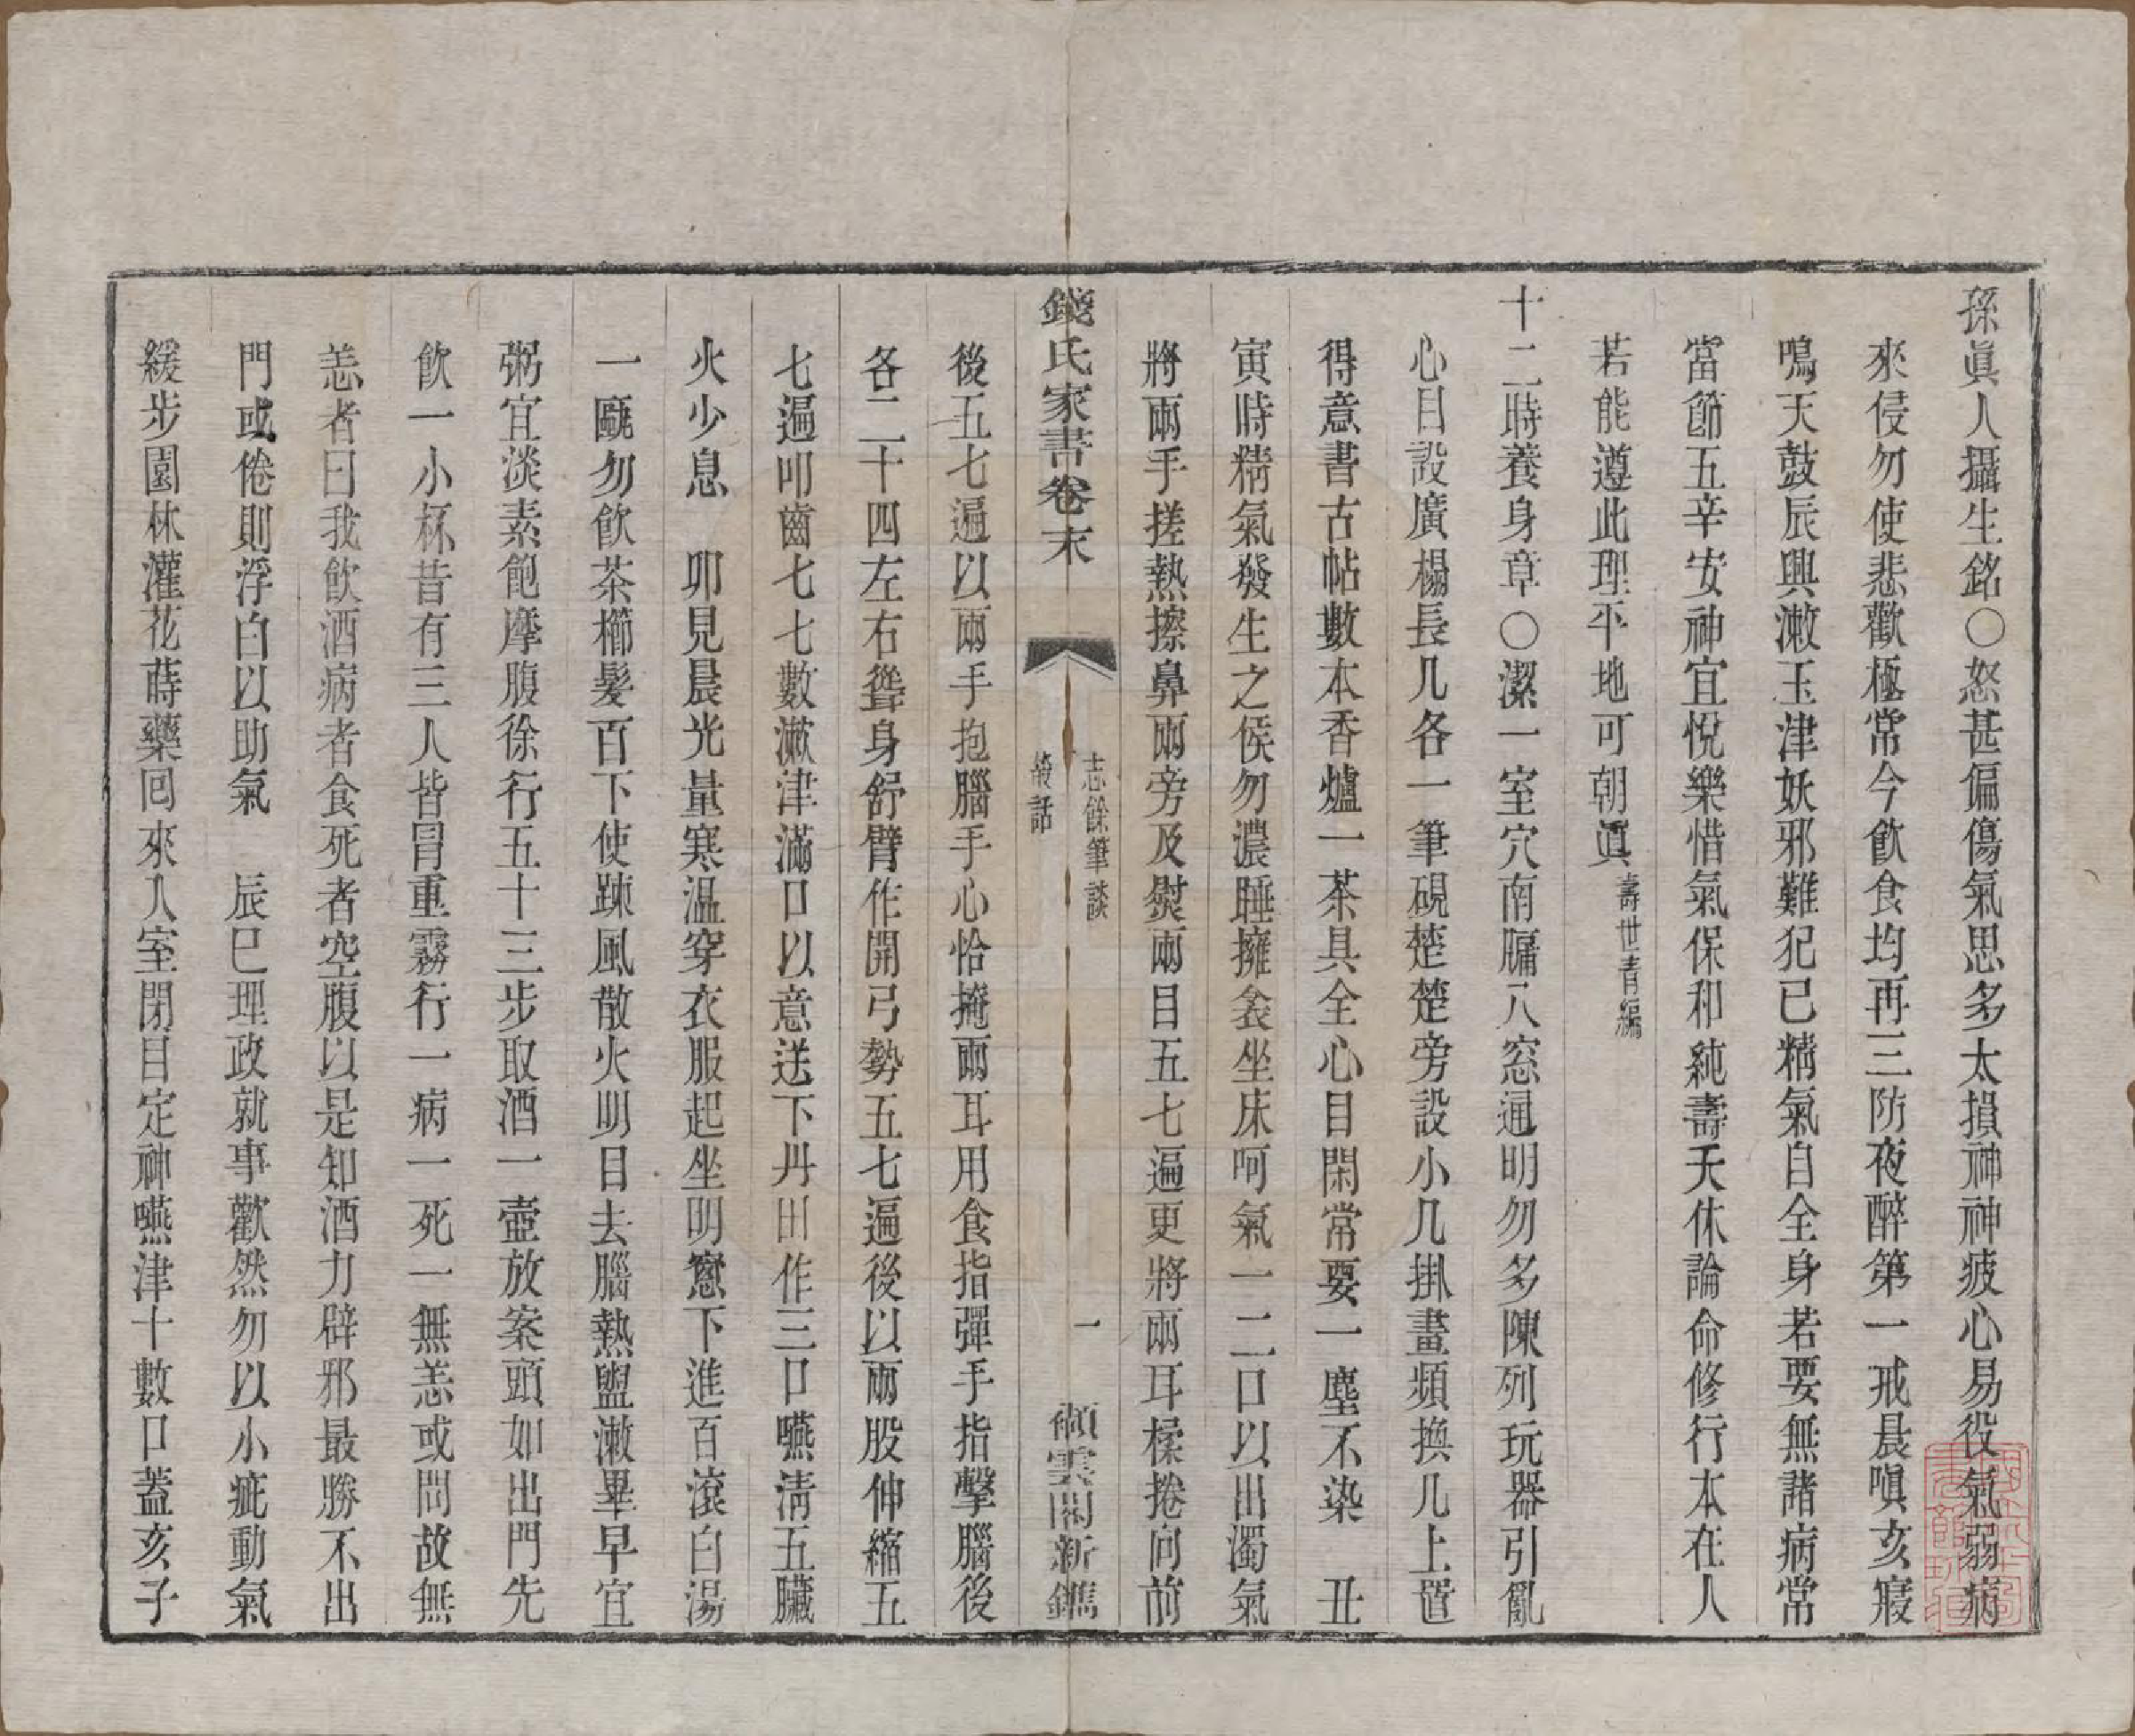 孫眞人攝生銘○怒甚偏傷氣思多太損神神疲心易役氣弱病
來侵勿使悲歡極常今飲食均再三防夜醉第一戒晨嗔亥寢
鳴天鼓辰興漱玉津妖邪難犯已精氣自全身若要無諸病常
當節五辛安神宜悅樂惜氣保和純壽夭休論命修行本在人
若能遵此理平地可朝眞壽世青編
十二時養身章○潔一室穴南牖八窓通明勿多陳列玩器引亂
心目設廣榻長几各一筆硯楚楚旁設小几掛畫頻換几上置
得意書古帖數本香爐一茶具全心目閑常要一塵不染　丑
寅時精氣發生之候勿濃睡擁衾坐床呵氣一二口以出濁氣
將兩手搓熱擦鼻兩旁及熨兩目五七遍更將兩耳揉捲向前
錢氏家書卷末
志餘筆談
叢話
一
顓雲閣新鐫
後五七遍以兩手抱腦手心恰掩兩耳用食指彈手指擊腦後
各二十四左右聳身舒臂作開弓勢五七遍後以兩股伸縮五
七遍叩齒七七數漱津滿口以意送下丹田作三口嚥淸五臟
火少息　卯見晨光量寒温穿衣服起坐明窻下進百滾白湯
一甌勿飲茶櫛髮百下使踈風散火明目去腦熱盥漱畢早宜
粥宜淡素飽摩腹徐行五十三步取酒一壺放案頭如出門先
飲一小杯昔有三人皆冐重霧行一病一死一無恙或問故無
恙者曰我飲酒病者食死者空腹以是知酒力辟邪最勝不出
門或倦則浮白以助氣　辰巳理政就事歡然勿以小疵動氣
緩步園林灌花蒔藥囘來入室閉目定神嚥津十數口蓋亥子